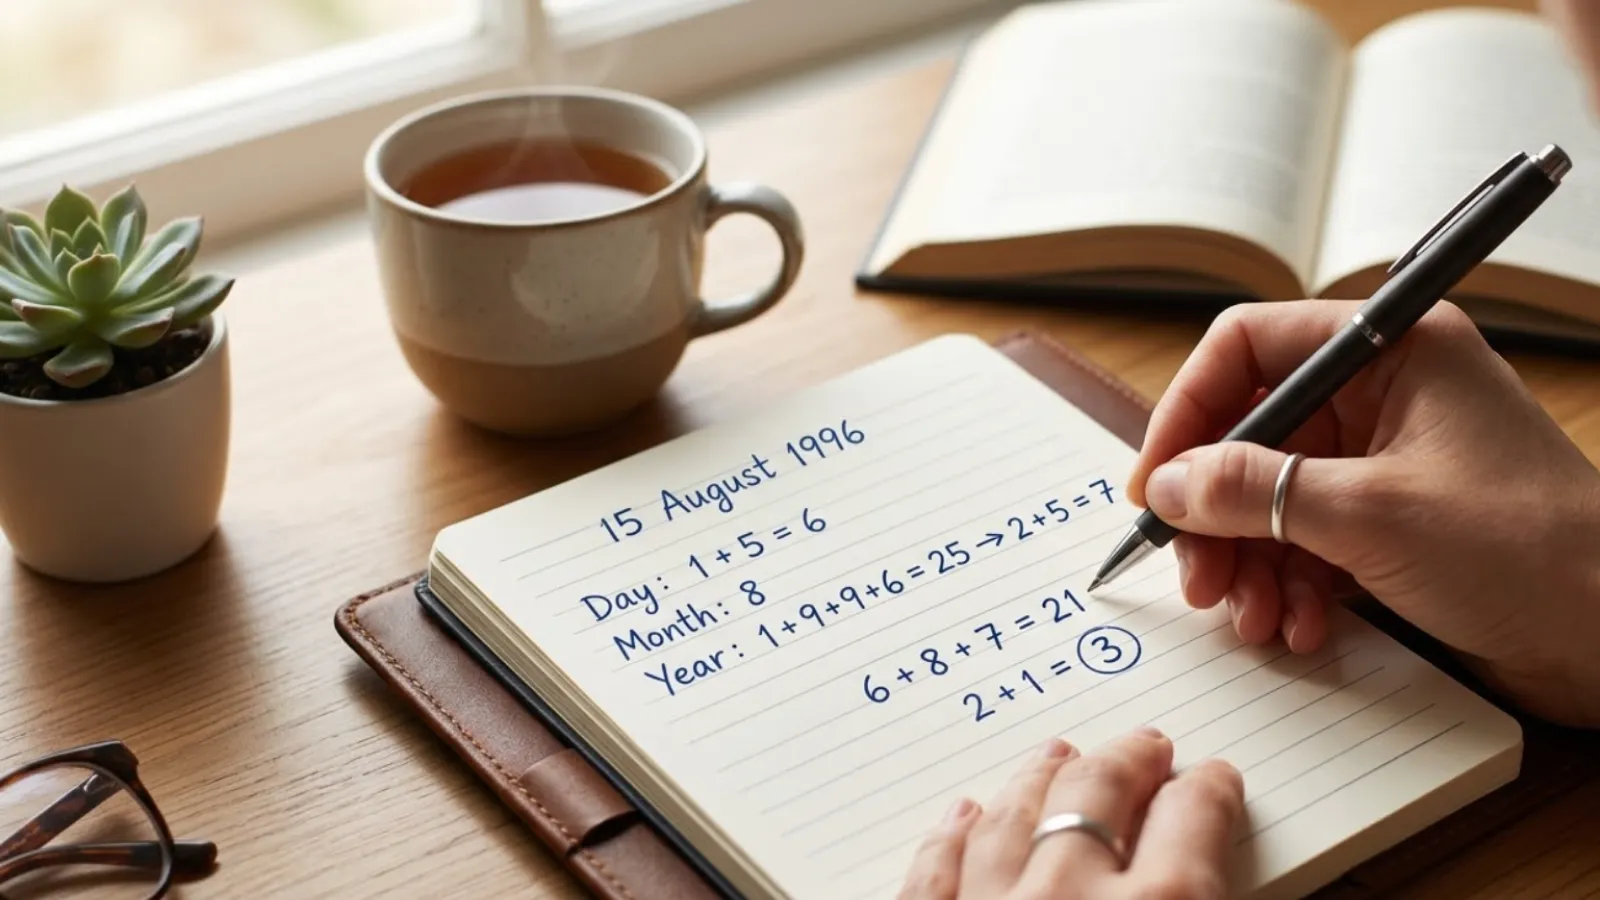 15 August 1996
Day: 1 + 5 = 6
Month: 8
Year: 1+9+9+6 = 25 → 2+5 = 7
6 + 8 + 7 = 21
2 + 1 = 3